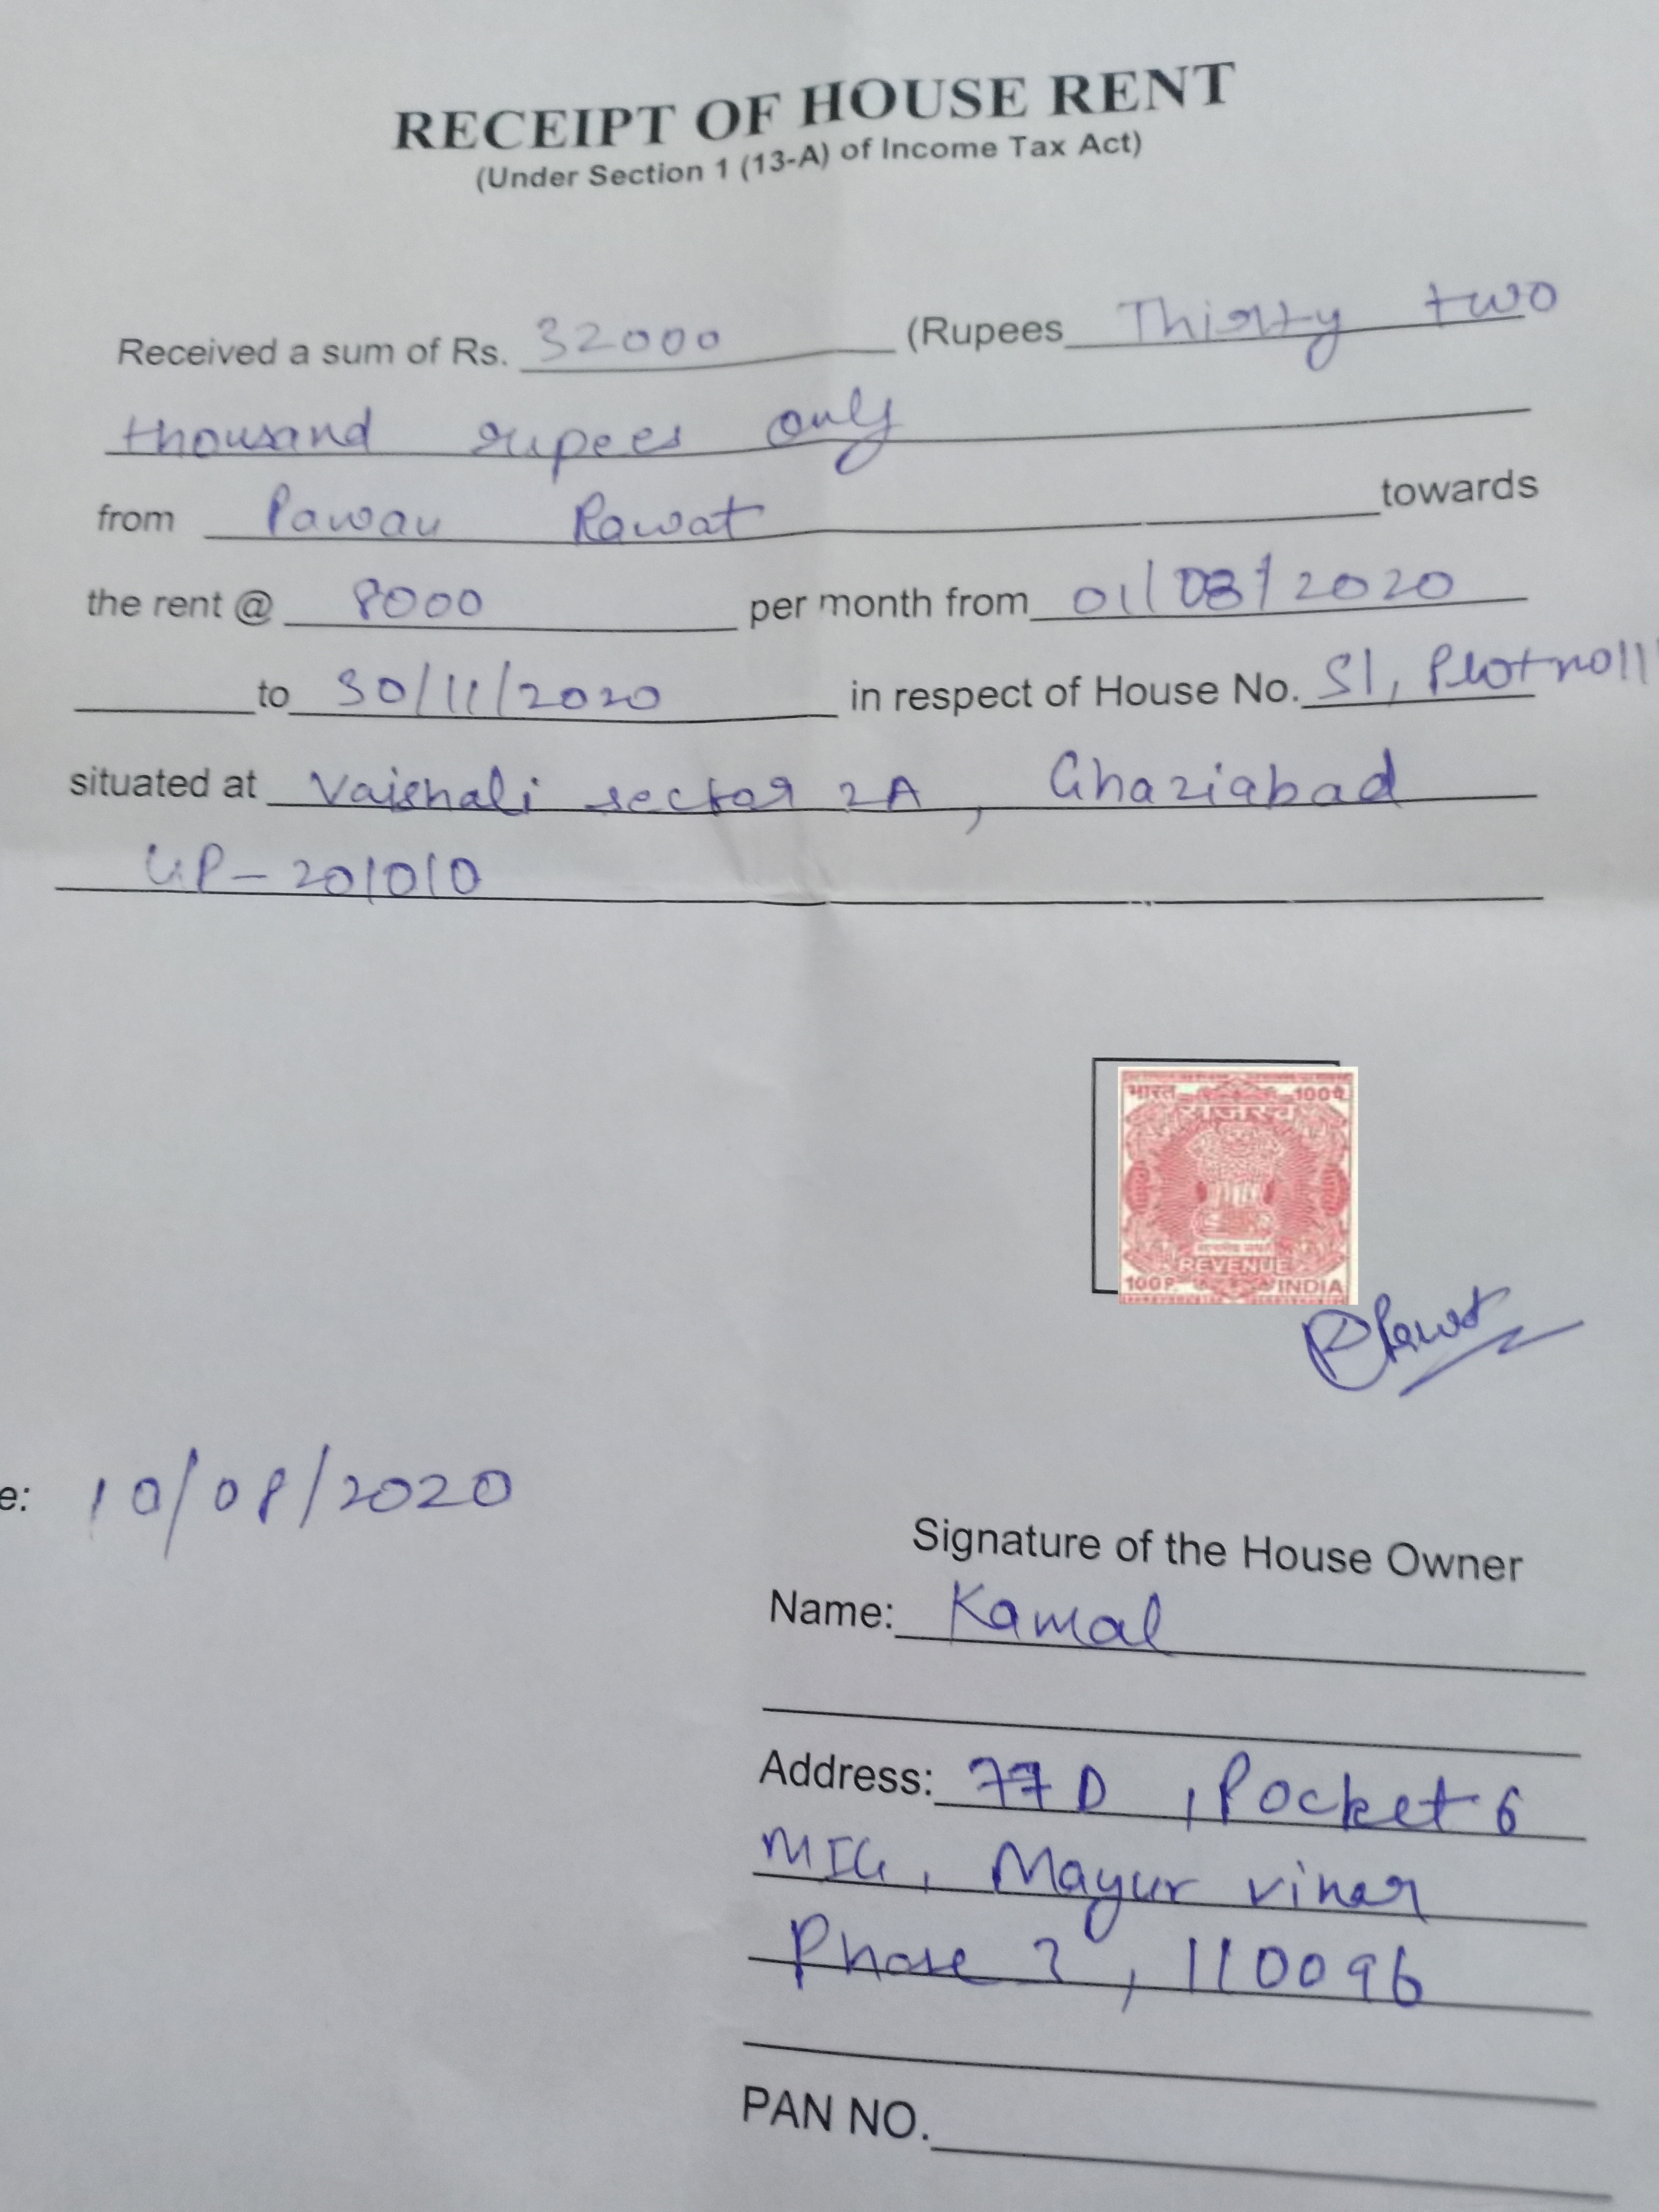 RECEIPT OF HOUSE RENT
(Under Section 1 (13-A) of Income Tax Act)
Received a sum of Rs. 32000 (Rupees Thirty two
thousand rupees only
from Pawan Rawat towards
the rent @ 8000 per month from 01/08/2020
to 30/11/2020 in respect of House No. S1, Plot no 11
situated at Vaishali sector 2A, Ghaziabad
UP-201010
भारत 100प
राजस्व
REVENUE
100P. INDIA
PRawat
e: 10/08/2020
Signature of the House Owner
Name: Kamal
Address: 77D, Pocket 6
MIG, Mayur vihar
Phase 3, 110096
PAN NO.